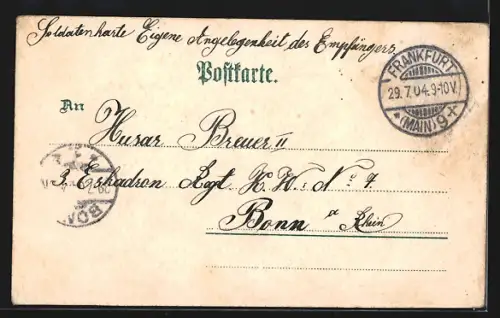 Soldatenkarte Eigene Angelegenheit des Empfängers
Postkarte.
FRANKFURT
29.7.04.9-10V.
*(MAIN)9*
An
Husar Breuer II
3. Eskadron Rgt. K. W. No 7.
Bonn a Rhein
BON